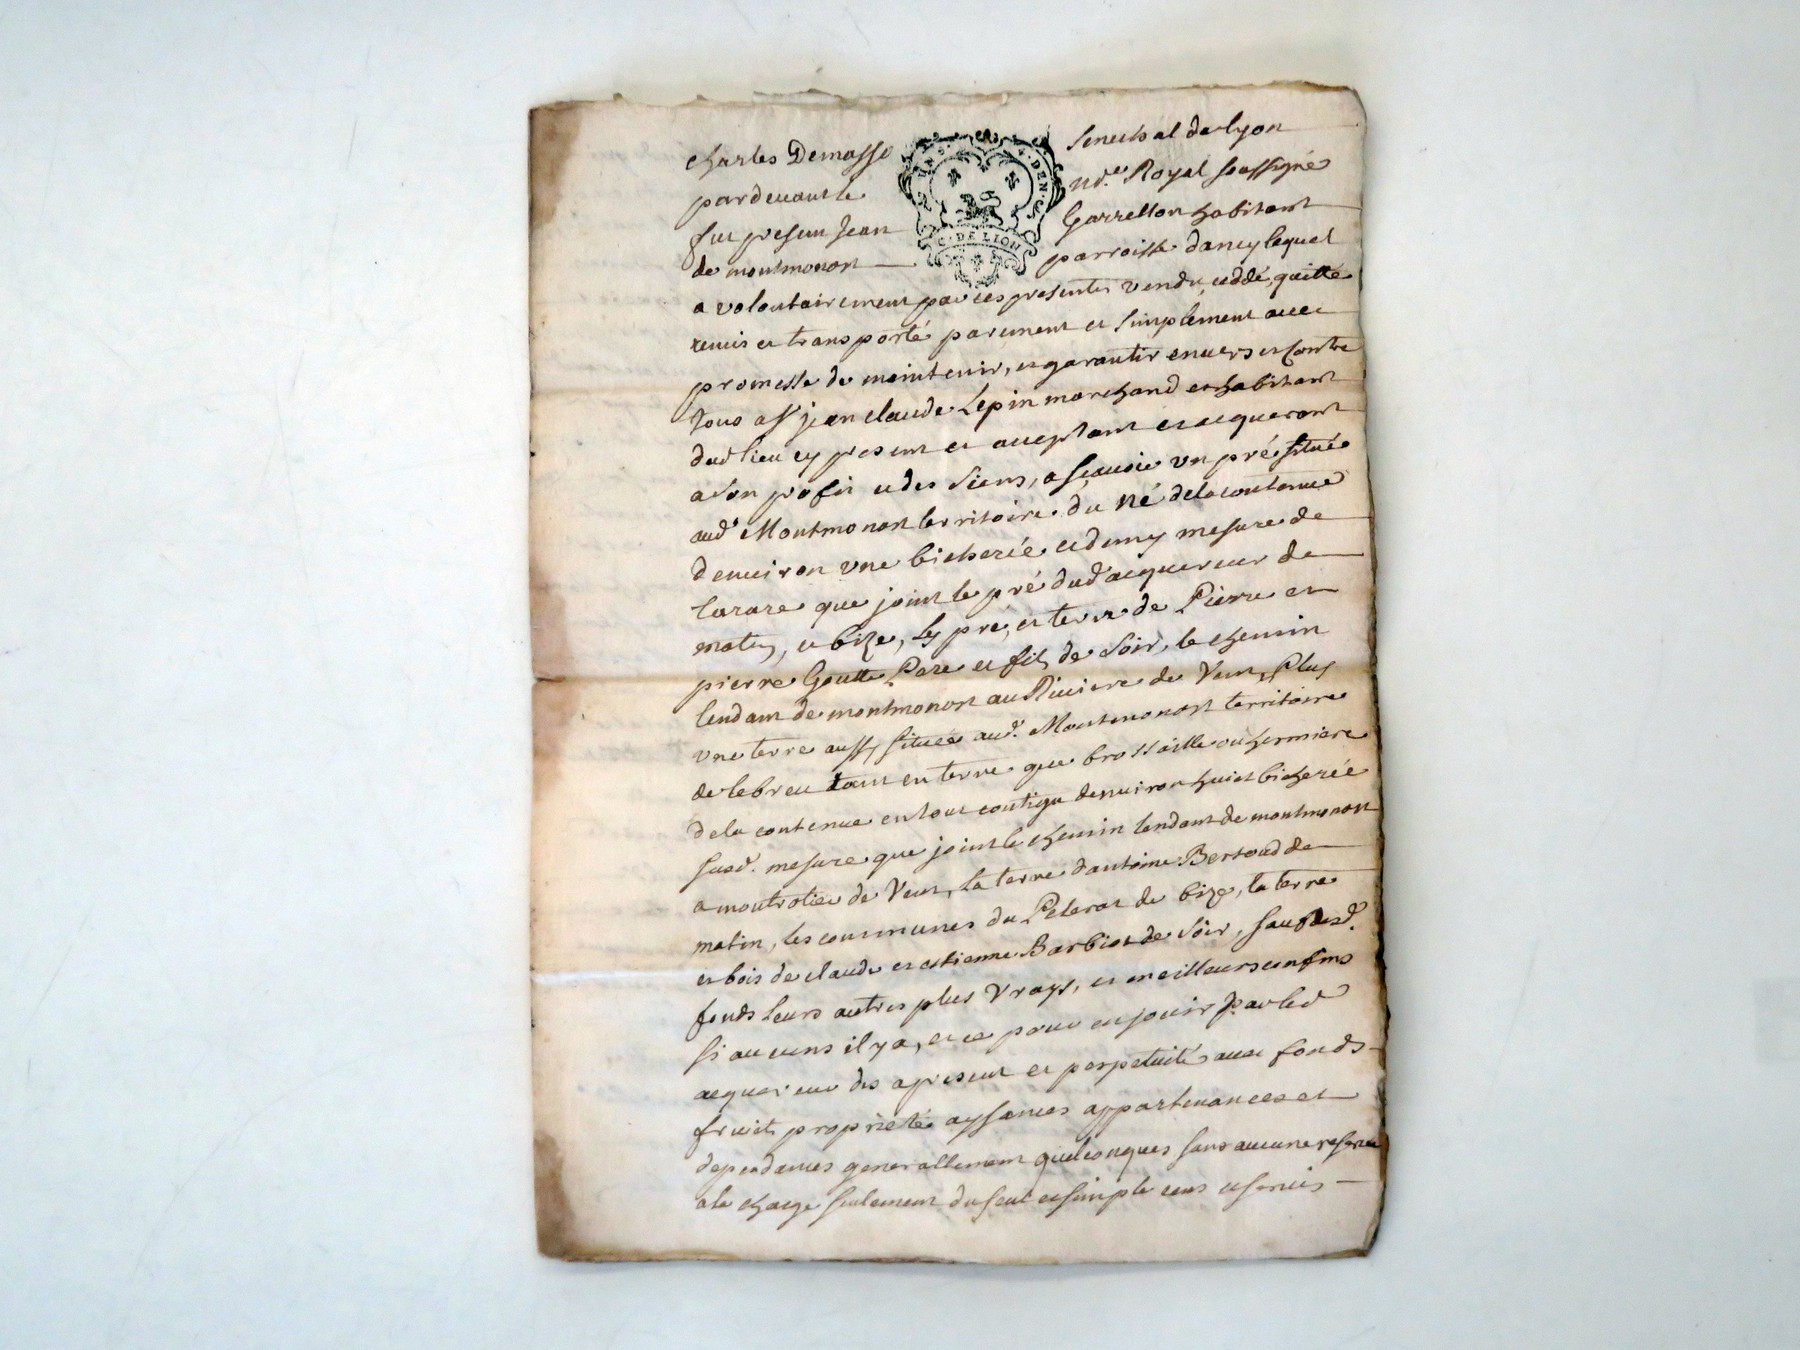 Charles Demasso Senechal de Lyon
pardevant le no.re Royal soussigné
fut present Jean Garrellon habitant
de montmonon parroisse dancy lequel
a volontairement par ces presentes vendu, ceddé, quitté
remis et transporté purement et simplement avec
promesse de maintenir, et garantir envers et contre
tous a sr jean claude Lepin marchand et habitant
dud lieu cy present et acceptant et acquerant
a son profit et des siens, a sçavoir un pré situé
aud. Montmonon territoire du Né de la contenue
denviron une bicherée et demy mesure de
tarare que joint le pré dud acquereur de
matin, et bize, les pré, et terre de Pierre et
pierre Goutte Pere et fils de soir, le chemin
tendant de montmonon au Riviere de Vent, Plus
une terre aussy située aud. Montmonon territoire
de lebreu tant en terre que brossaille ou hermiere
de la contenue en tout contigu denviron huict bicherée
susd. mesure que joint le chemin tendant de montmonon
a montrotier de Vent, la terre dantoine Bertoud de
matin, les communes du Peterat de bize, la terre
et bois de claude et estienne Barbiot de soir, sauf desd.
fonds leurs autres plus vrays, et meilleurs confins
si aucuns il y a, et ce pour en jouir par led
acquereur des a present et perpetuité avec fonds
fruits proprieté aysances appartenances et
dependances generallement quelconques sans aucune reserve
a la charge seulement du seul et simple cens et servis
GEN. DEN.
DE LION